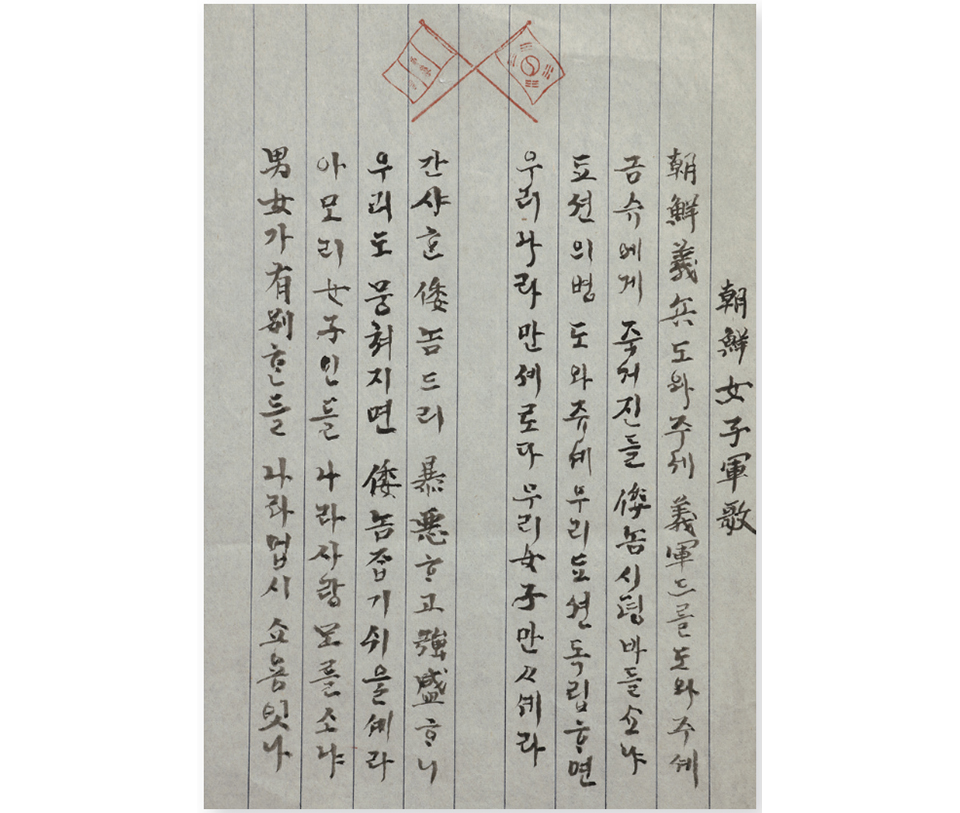 朝鮮女子軍歌
朝鮮義兵도와주세 義軍드를도와주셰
금슈에게 죽거진들 倭놈시뎡바들쇼냐
됴션의병 도와쥬셰 우리됴션독립ᄒᆞ면
우리나라만셰로다 우리女子만々셰라
간샤ᄒᆞᆫ倭놈드리 暴悪ᄒᆞ고強盛ᄒᆞ니
우리도뭉쳐지면 倭놈ᄌᆞᆸ기쉬울셰라
아모리女子인들 나라사랑모를소냐
男女가有別ᄒᆞᆫ들 나라업시 쇼용잇나